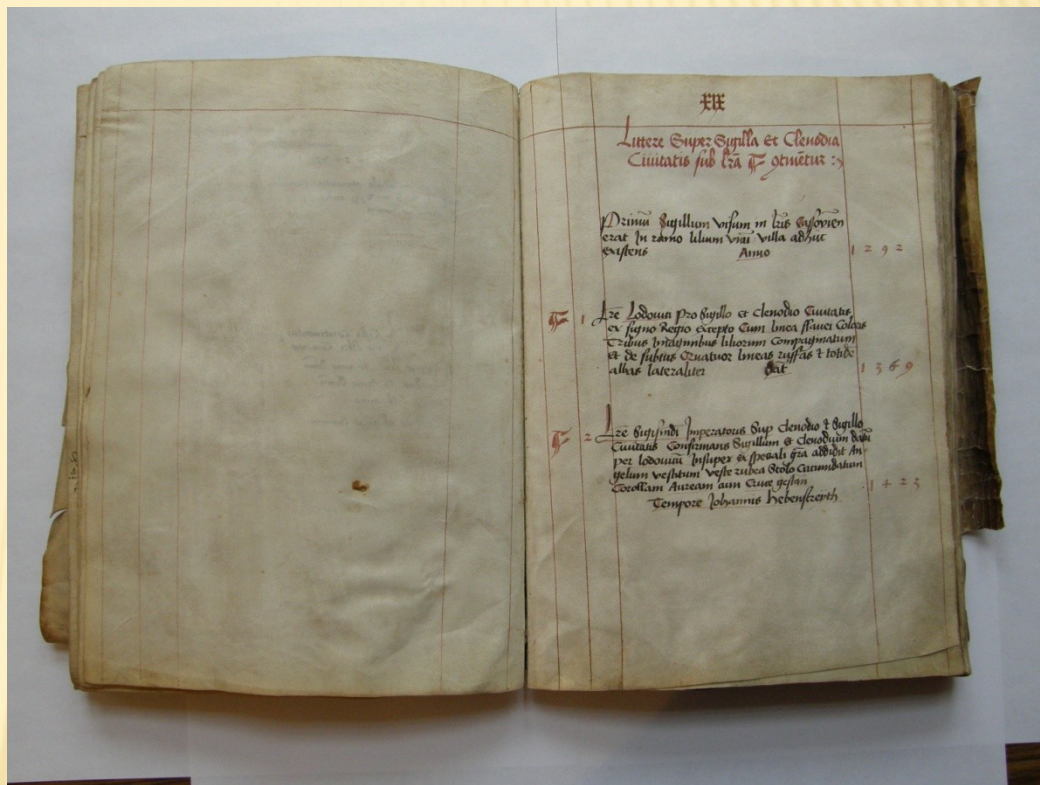 XIX
Littere Super Sigilla Et Clenodia
Ciuitatis sub lrã otinẽtur :
Primũ Sigillum visum in lris Cassovien
erat In ramo lilium villa adhuc
existens Anno 1292
1 Lre Lodovici Pro Sigillo et Clenodio Ciuitatis
ex signo Regio excepto Cum linea flauei Coloris
Tribus Imaginibus liliorum Compaginatum
et de subtus Quatuor lineas ruffas t totide
albas lateraliter Dat 1369
2 Lre Sigismũdi Imperatoris Sup Clenodio t Sigillo
Ciuitatis Confirmans Sigillum et Clenodium
per lodouicũ Insuper ex speciali grã addidit An-
gelum vestitum veste rubea Stolo Circumdatum
Corollam Auream cum Cruce gestan 1423
Tempore Johannis Hebenstreyth